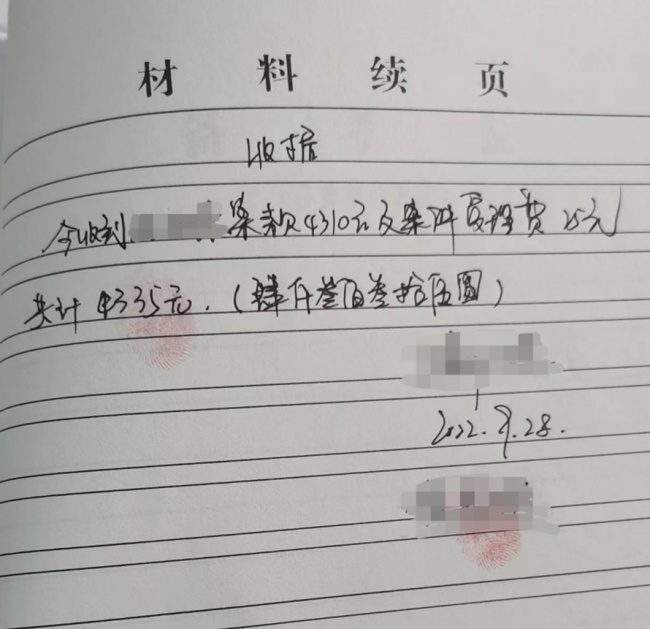 材料续页
收据
今收到 案款4310元及案件受理费25元
共计4335元.(肆仟叁佰叁拾伍圆)
2022.9.28.